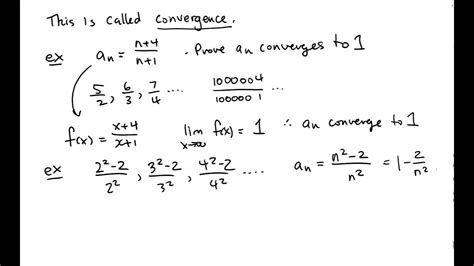 This is called convergence.
ex aₙ = (n+4)/(n+1) . Prove an converges to 1
5/2, 6/3, 7/4 .... 1000004/100000 1 ...
f(x) = (x+4)/(x+1) lim x→∞ f(x) = 1 ∴ an converge to 1
ex (2²-2)/2², (3²-2)/3², (4²-2)/4² .... aₙ = (n²-2)/n² = 1 - 2/n².